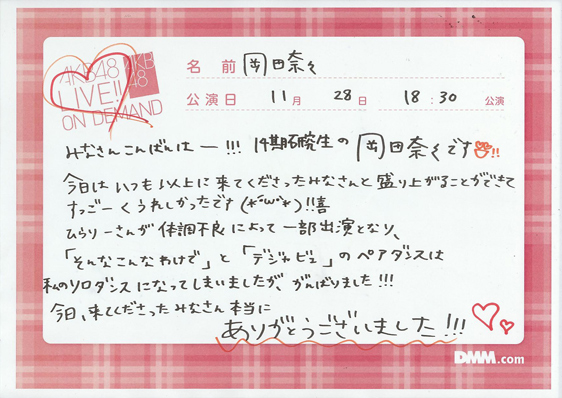 AKB48
LIVE!!
ON DEMAND
AKB
48
名前 岡田奈々
公演日 11月 28日 18:30 公演
みなさんこんばんはー!!! 14期研究生の岡田奈々です!!
今日はいつも以上に来てくださったみなさんと盛り上がることができて
すっごーくうれしかったです(*´ω`*)!!喜
ひらりーさんが体調不良によって一部出演となり、
「そんなこんなわけで」と「デジャビュ」のペアダンスは
私のソロダンスになってしまいましたが、がんばりました!!!
今日、来てくださったみなさん本当に
ありがとうございました!!!
DMM.com